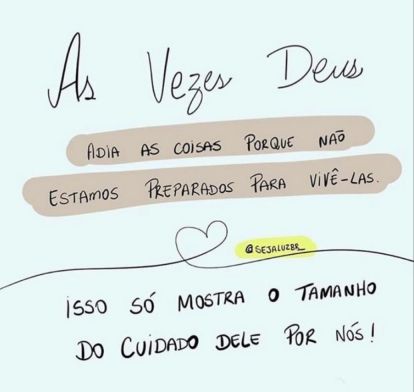 As Vezes Deus
ADIA AS COISAS PORQUE NÃO
ESTAMOS PREPARADOS PARA VIVÊ-LAS.
@SEJALUZBR_
ISSO SÓ MOSTRA O TAMANHO
DO CUIDADO DELE POR NÓS!